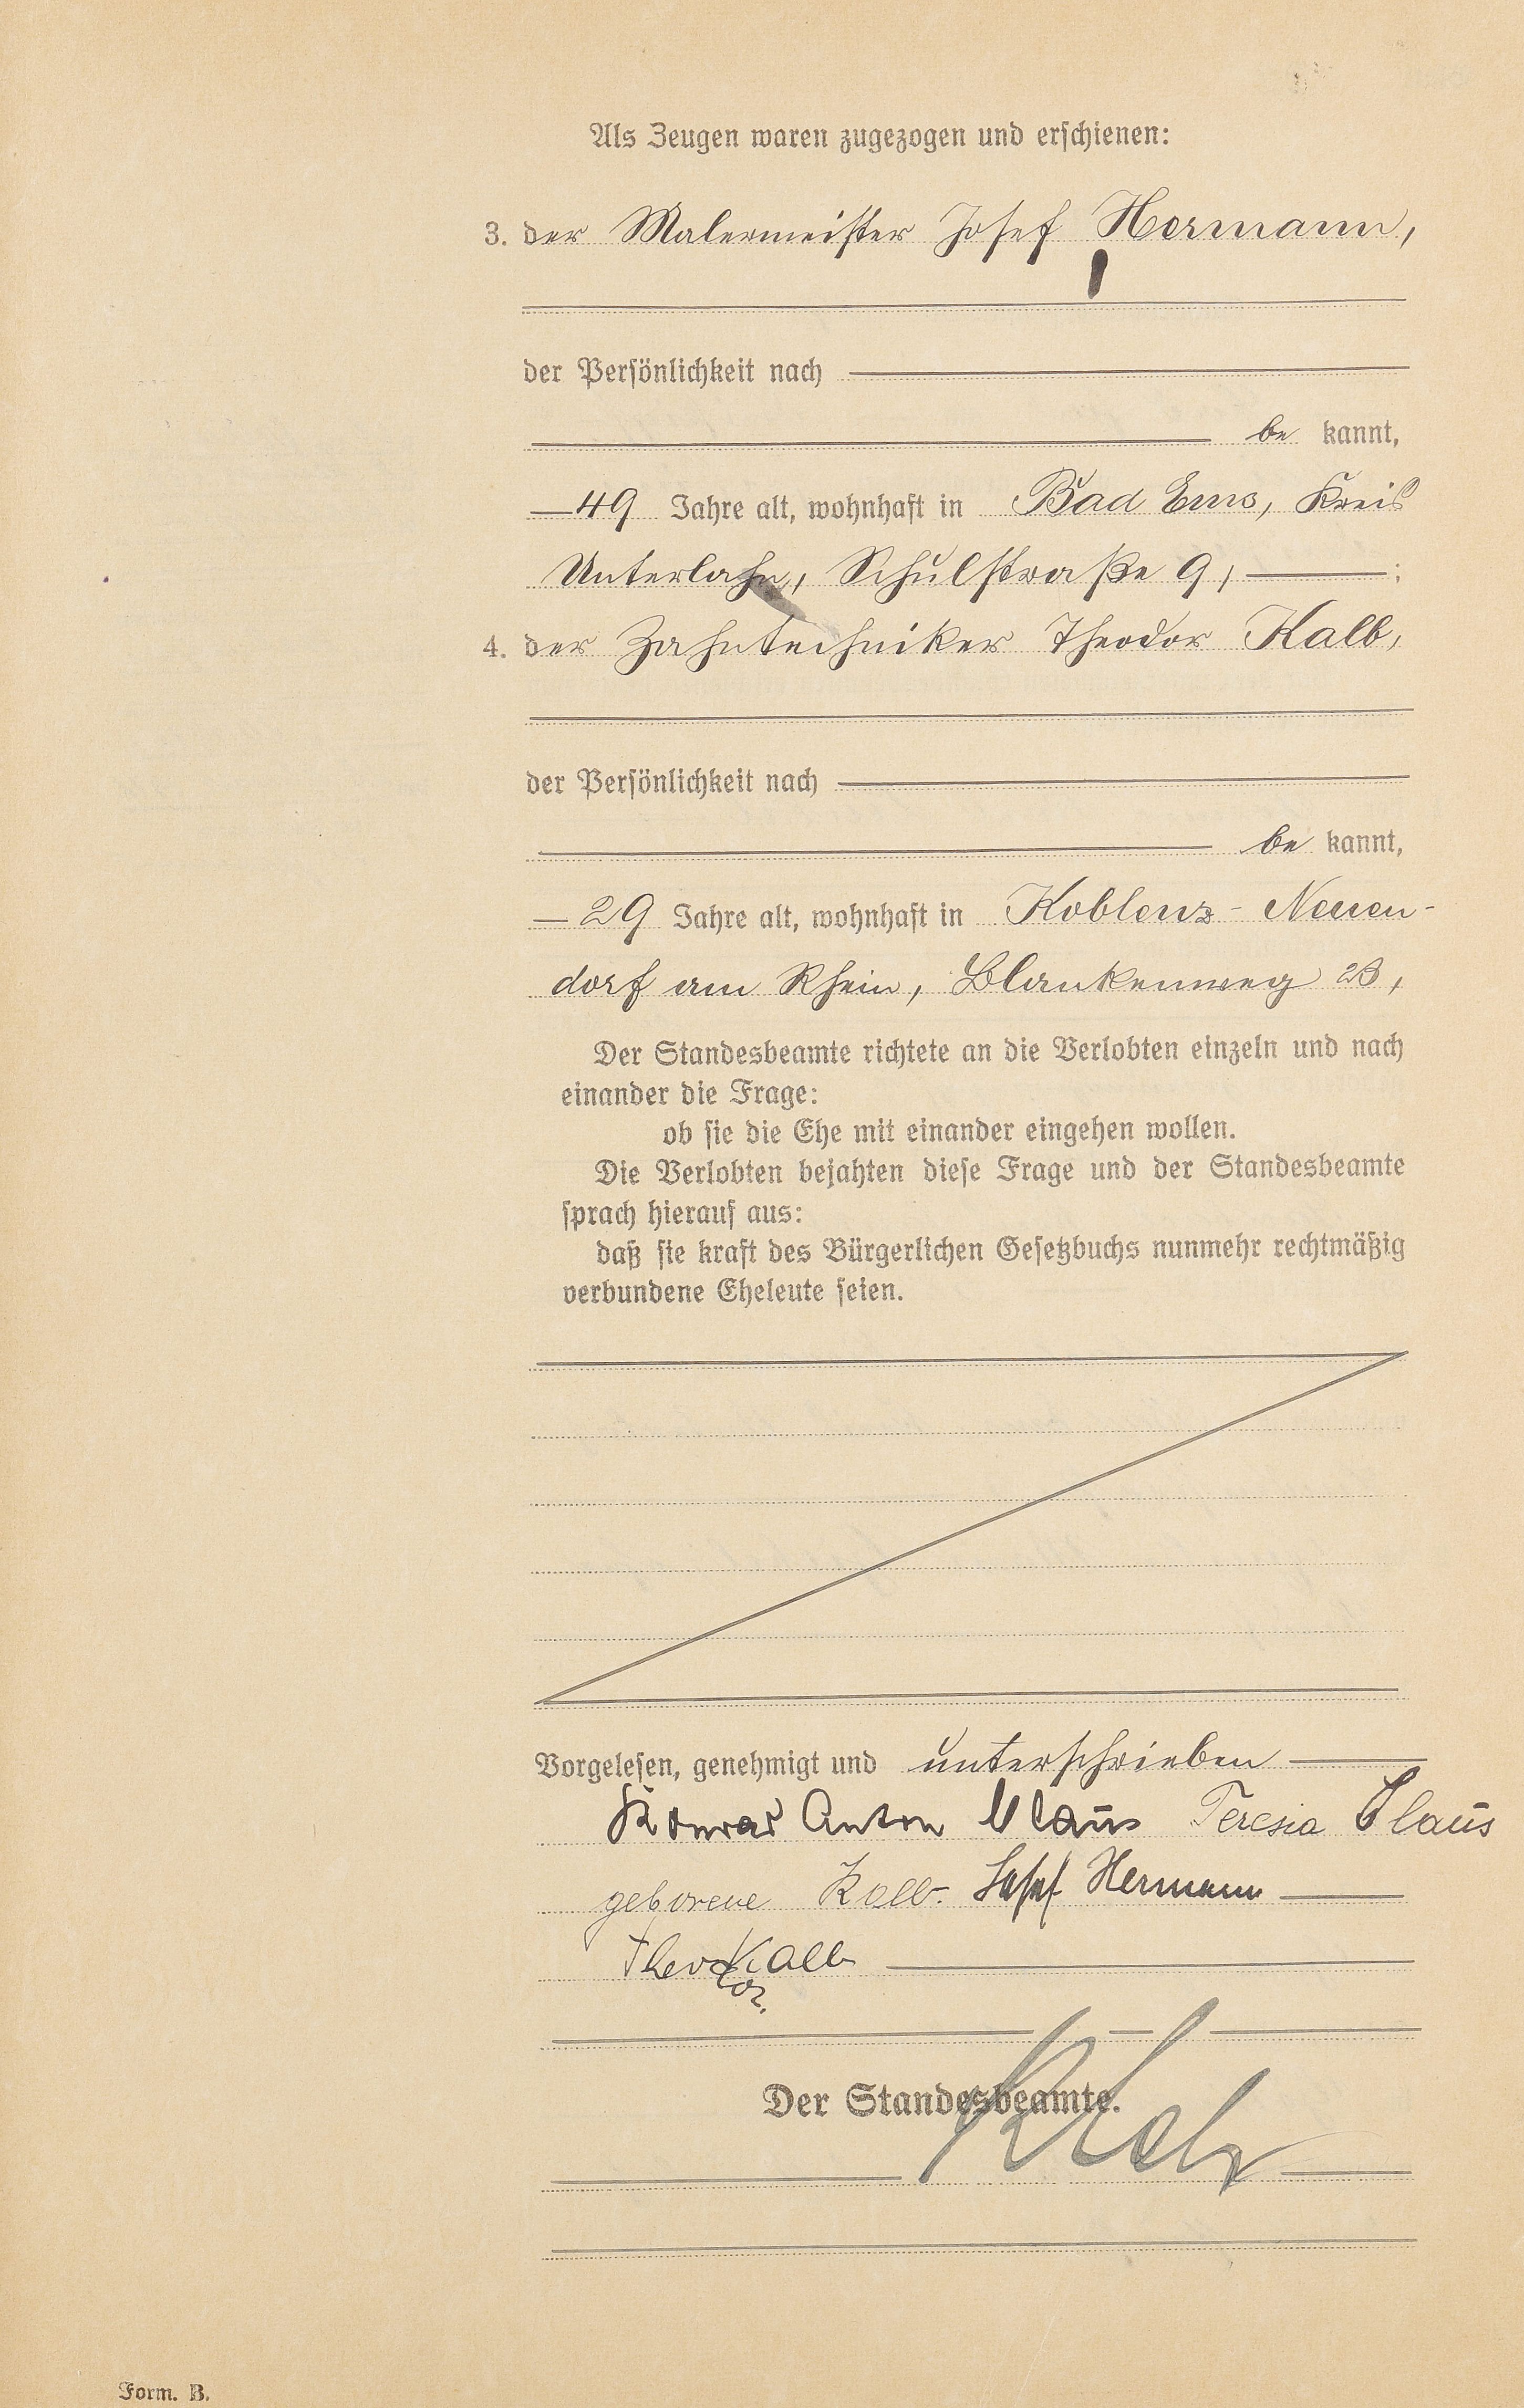 Als Zeugen waren zugezogen und erschienen:
3. der Malermeister Josef Hermann,
der Persönlichkeit nach
be kannt,
49 Jahre alt, wohnhaft in Bad Ems, Kreis
Unterlahn, Schulstraße 9, ;
4. der Zahntechniker Theodor Kalb,
der Persönlichkeit nach
be kannt,
29 Jahre alt, wohnhaft in Koblenz-Neuen-
dorf am Rhein, Blankenweg 23,
Der Standesbeamte richtete an die Verlobten einzeln und nach
einander die Frage:
ob sie die Ehe mit einander eingehen wollen.
Die Verlobten bejahten diese Frage und der Standesbeamte
sprach hierauf aus:
daß sie kraft des Bürgerlichen Gesetzbuchs nunmehr rechtmäßig
verbundene Eheleute seien.
Vorgelesen, genehmigt und unterschrieben
Konrad Anton Klaus Teresia Klaus
geborene Kalb. Josef Hermann
Theodor Kalb
Der Standesbeamte.
Form. B.